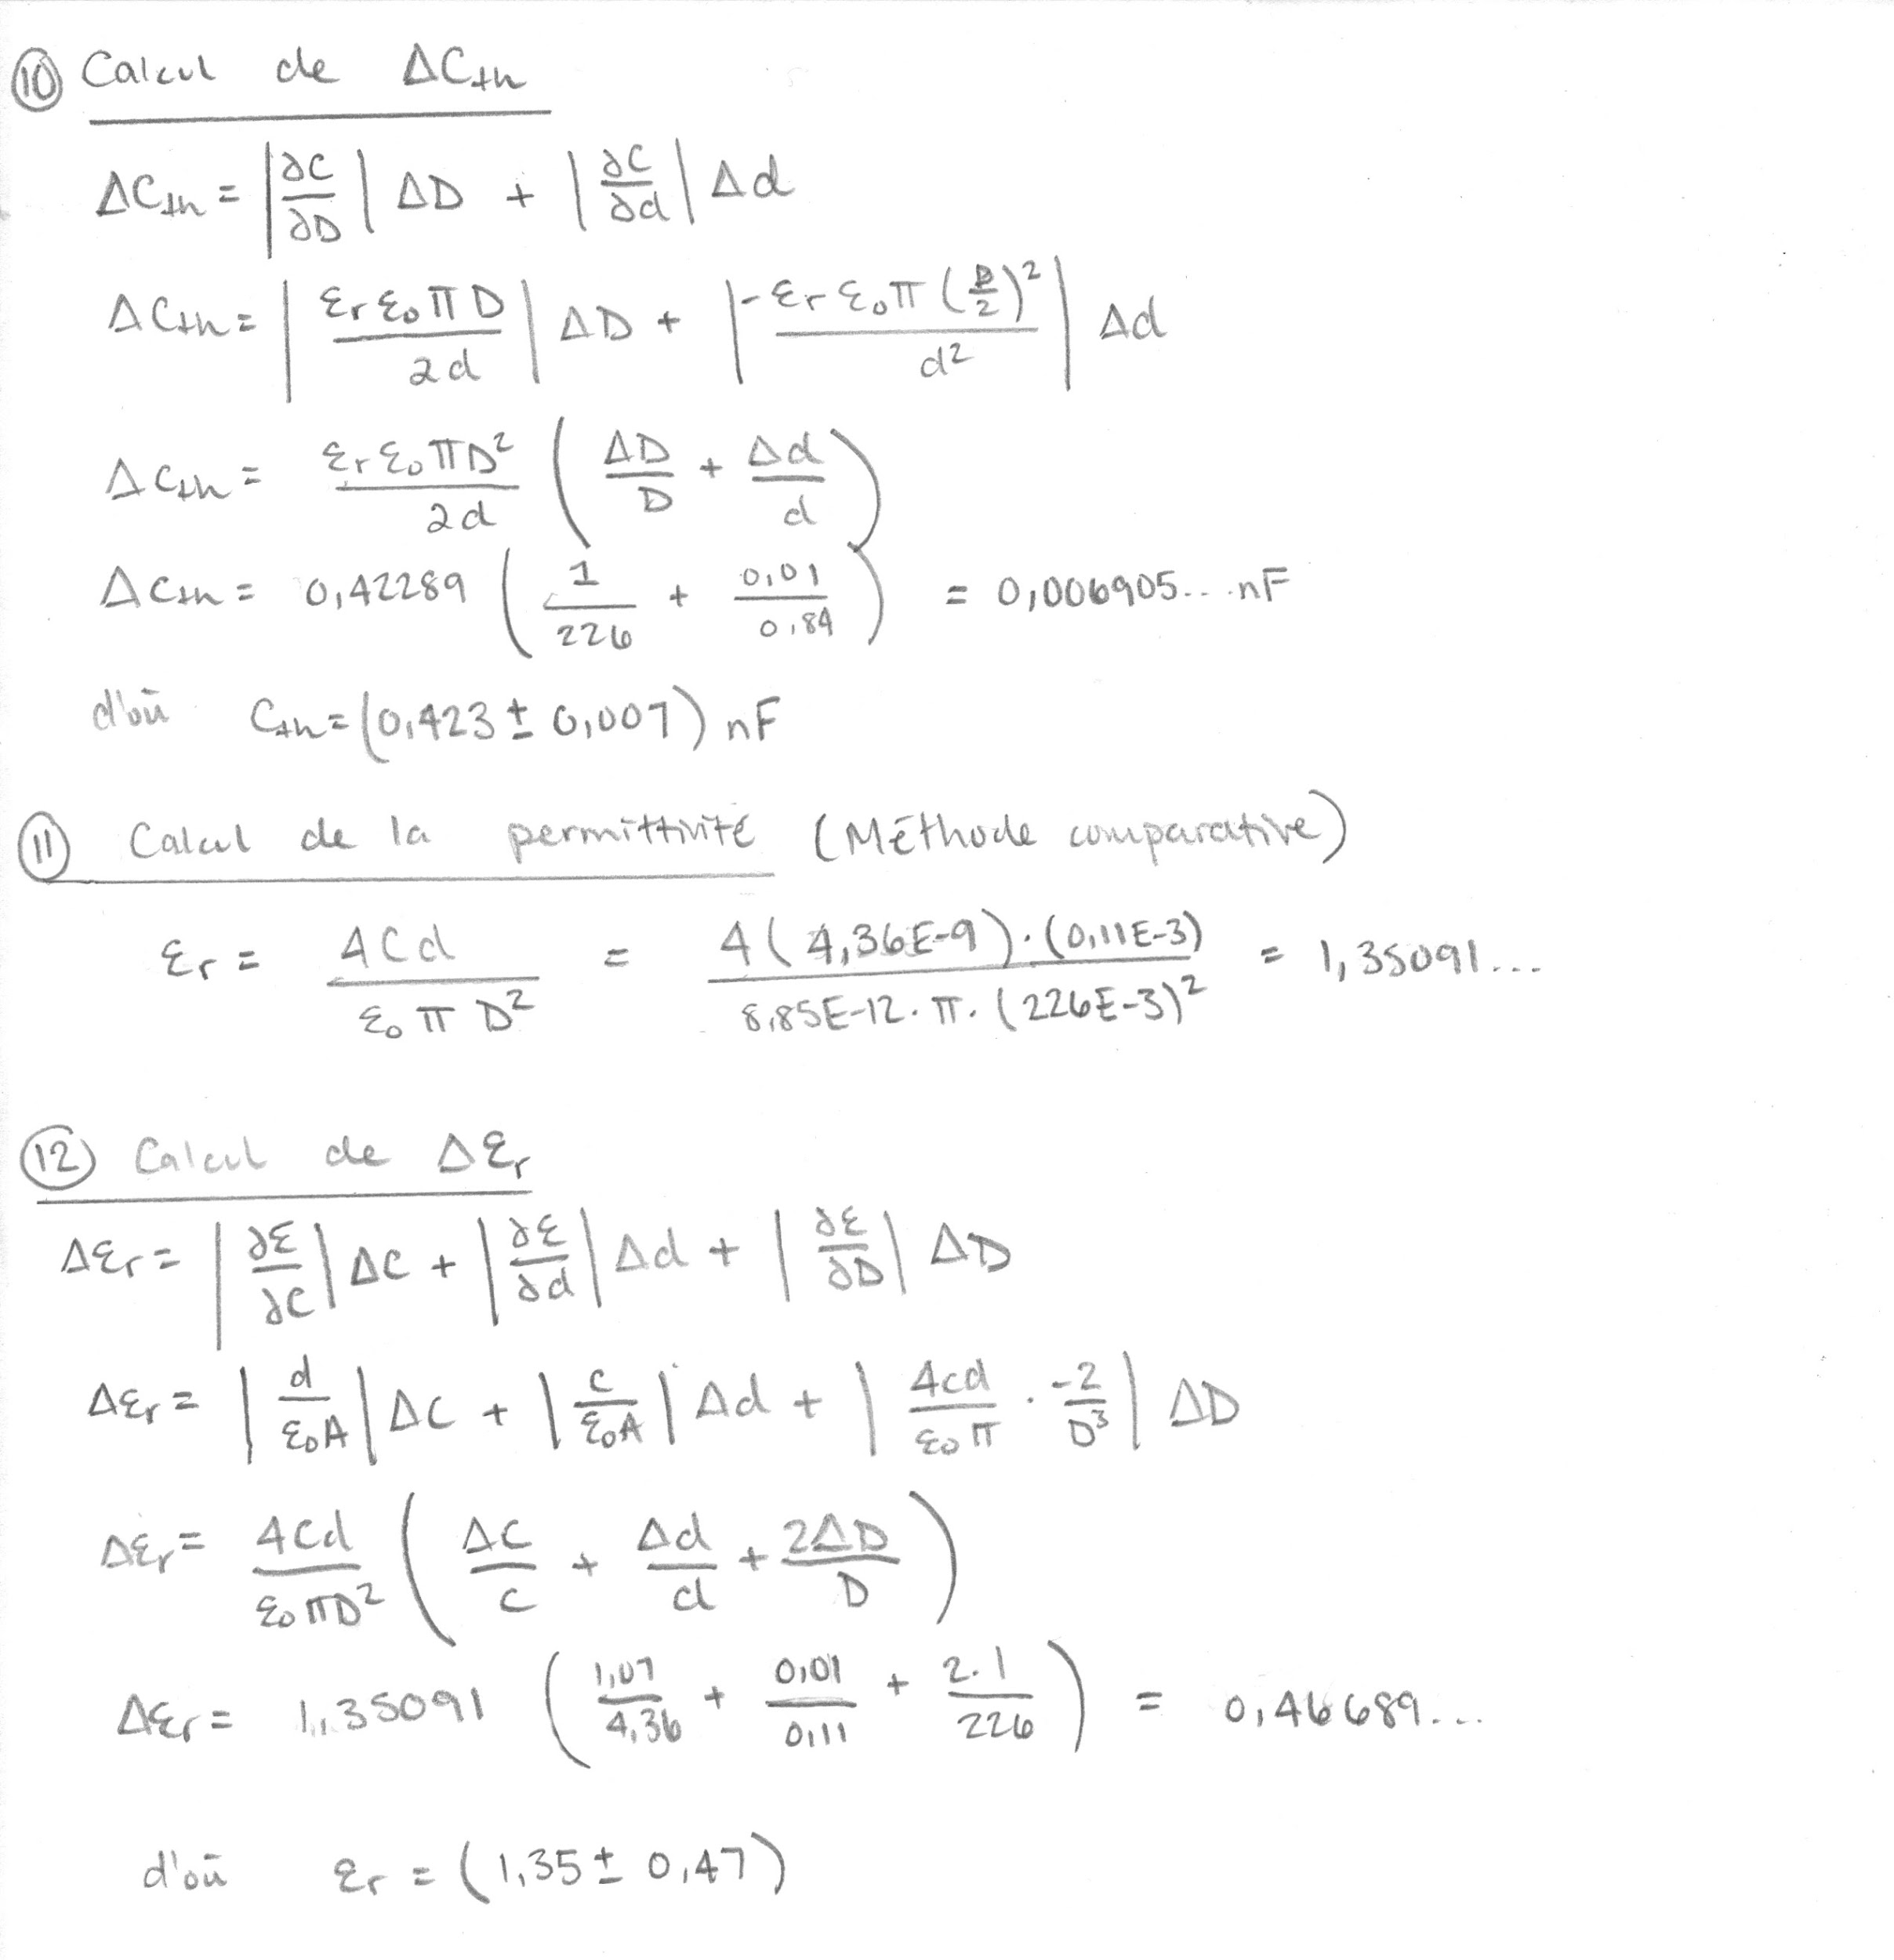 ⑩ Calcul de ΔCth
ΔCth = |∂C/∂D| ΔD + |∂C/∂d| Δd
ΔCth = |εr ε0 π D / 2d| ΔD + |-εr ε0 π (D/2)² / d²| Δd
ΔCth = εr ε0 π D² / 2d (ΔD/D + Δd/d)
ΔCth = 0,42289 (1/226 + 0,01/0,84) = 0,006905... nF
d'où Cth = (0,423 ± 0,007) nF
⑪ Calcul de la permittivité (Méthode comparative)
εr = 4Cd / ε0 π D² = 4(4,36E-9)·(0,11E-3) / 8,85E-12·π·(226E-3)² = 1,35091...
⑫ Calcul de Δεr
Δεr = |∂ε/∂C| ΔC + |∂ε/∂d| Δd + |∂ε/∂D| ΔD
Δεr = |d/ε0A| ΔC + |c/ε0A| Δd + |4cd/ε0π · -2/D³| ΔD
Δεr = 4Cd / ε0πD² (ΔC/C + Δd/d + 2ΔD/D)
Δεr = 1,35091 (1,07/4,36 + 0,01/0,11 + 2·1/226) = 0,46689...
d'où εr = (1,35 ± 0,47)